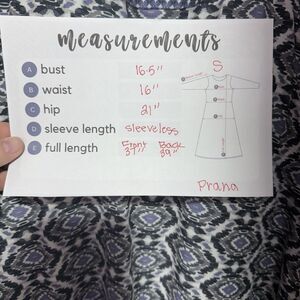 measurements
S
A bust 16.5"
B waist 16"
C hip 21"
D sleeve length sleeveless
E full length Front 37" Back 39"
Prana